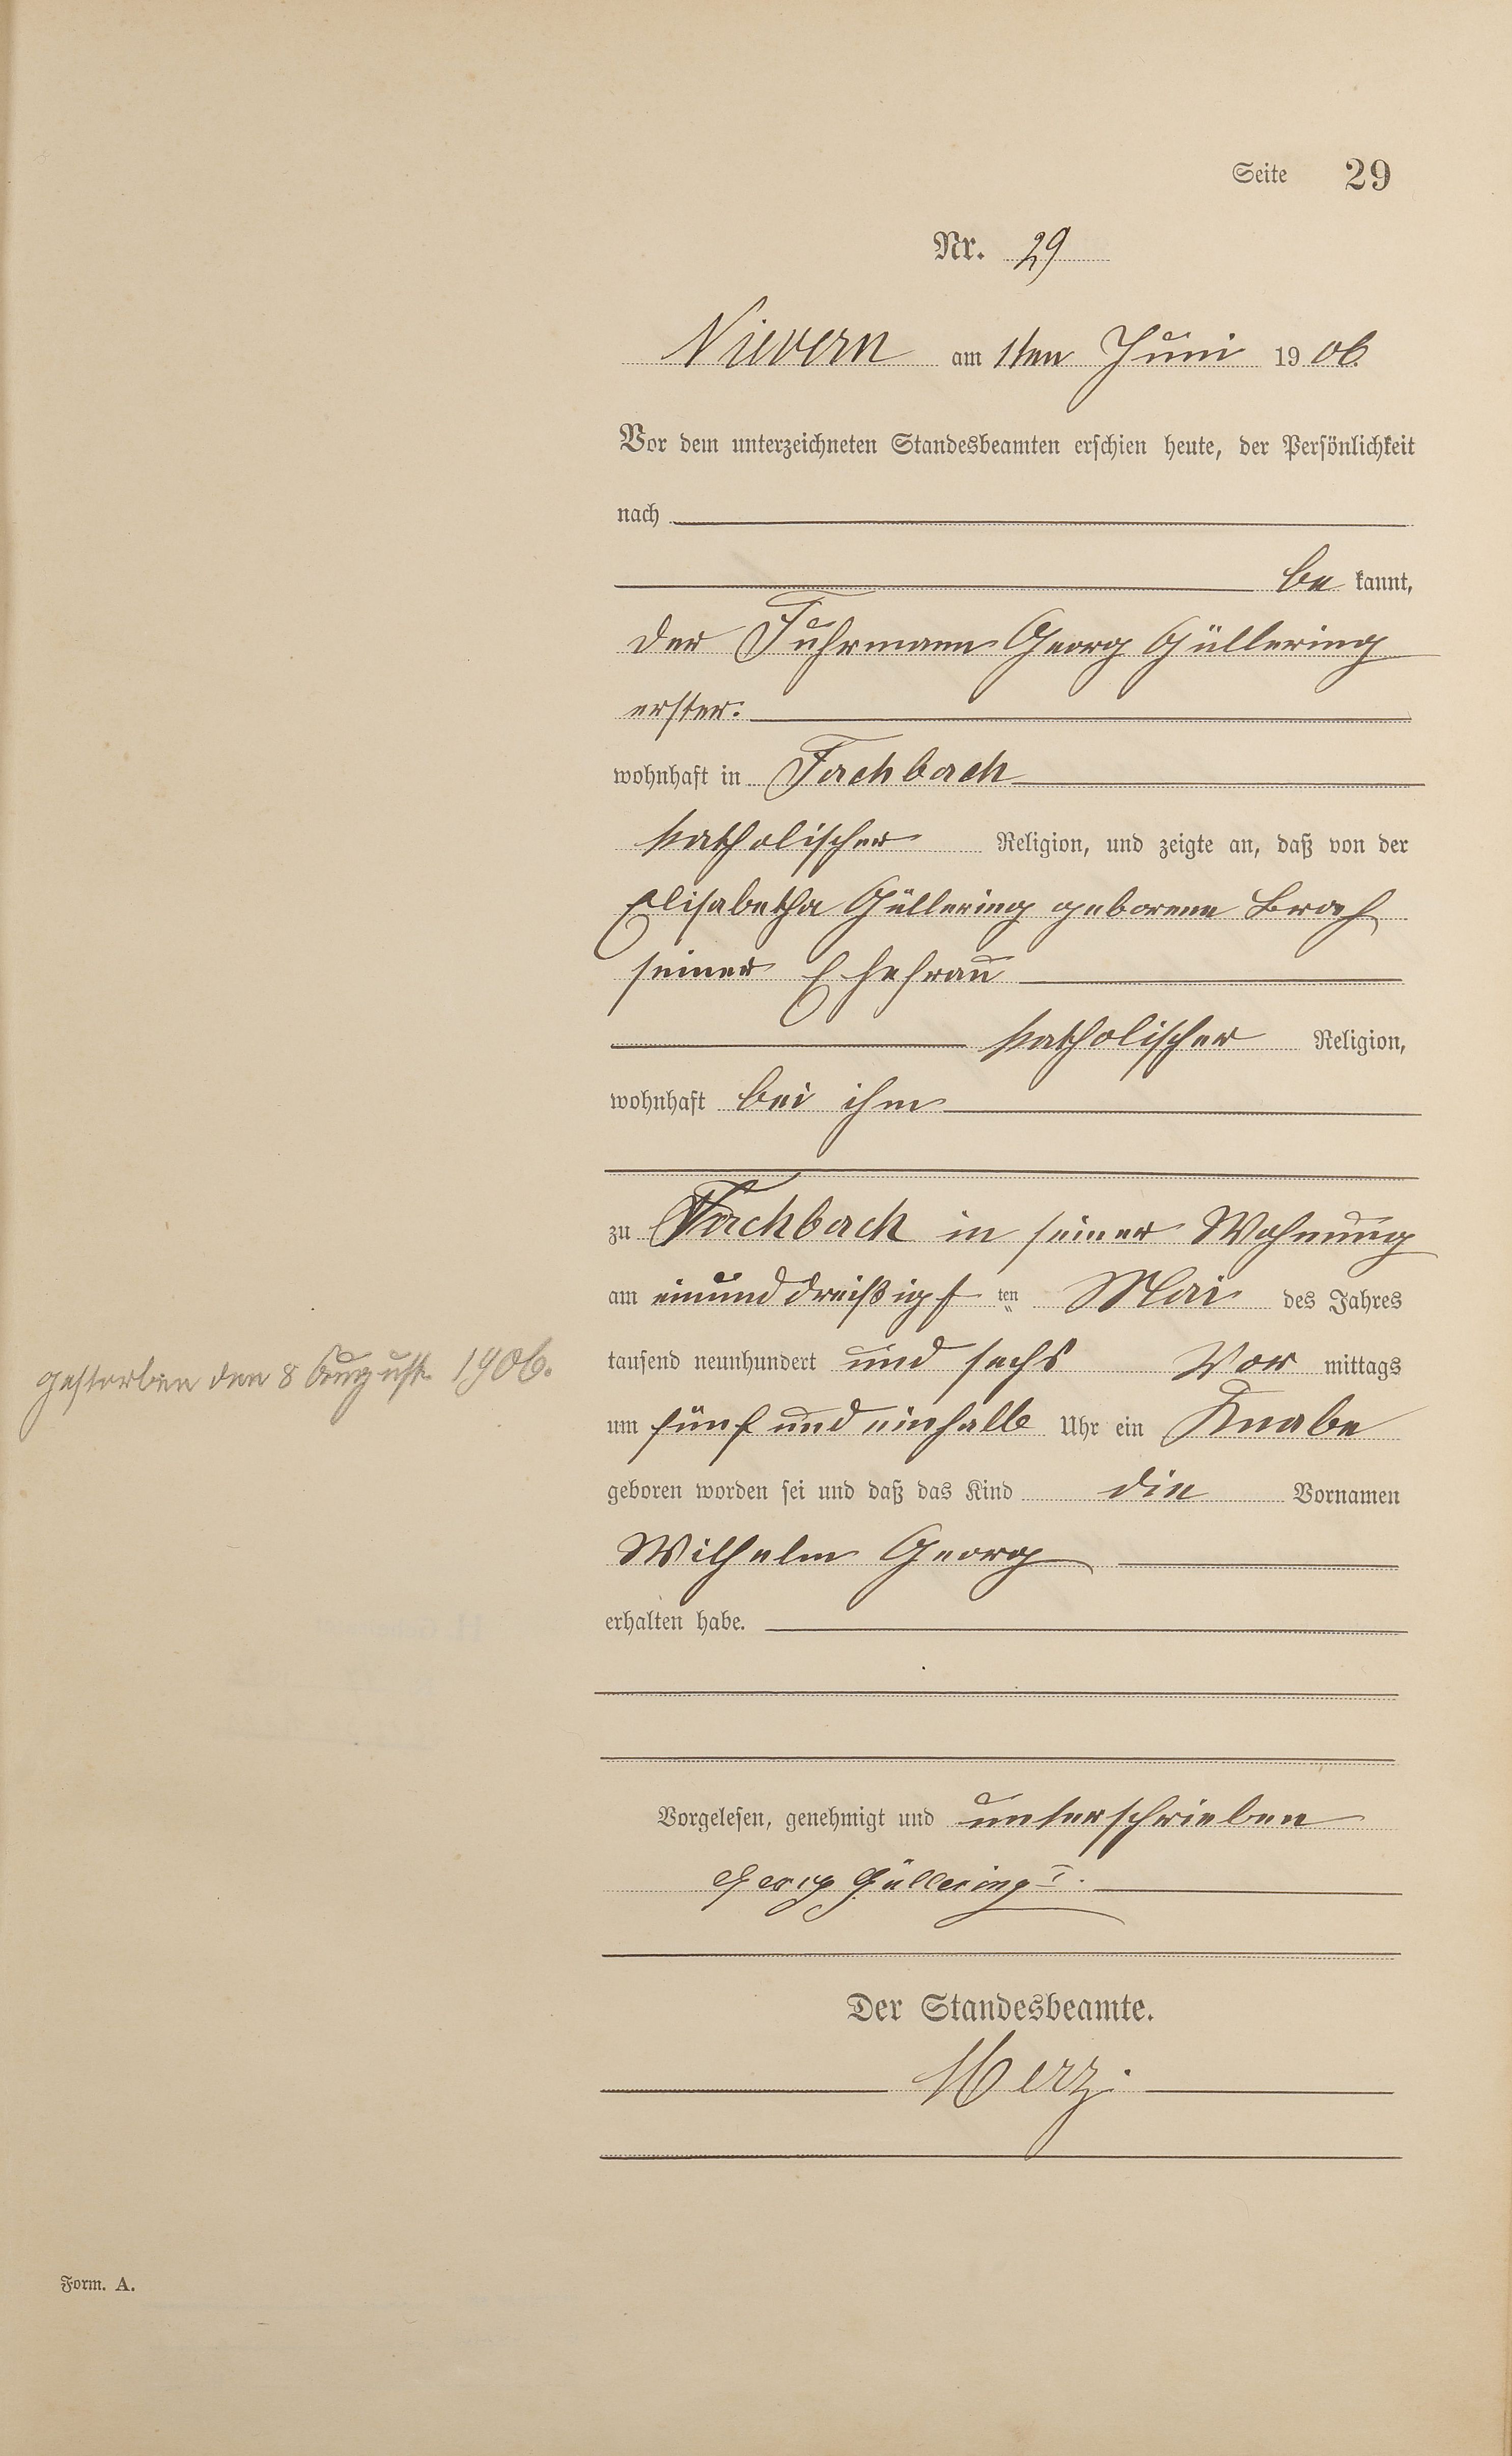 Seite 29
Nr. 29
Nievern am 1ten Juni 1906.
Vor dem unterzeichneten Standesbeamten erschien heute, der Persönlichkeit
nach
be kannt,
der Fuhrmann Georg Güllering
erster.
wohnhaft in Fachbach
katholischer Religion, und zeigte an, daß von der
Elisabetha Güllering geborene
seiner Ehefrau
katholischer Religion,
wohnhaft bei ihm
zu Fachbach in seiner Wohnung
am einunddreißigs ten Mai des Jahres
gestorben den 8 August 1906.
tausend neunhundert und sechs Vor mittags
um fünf und einhalb Uhr ein Knabe
geboren worden sei und daß das Kind die Vornamen
Wilhelm Georg
erhalten habe.
Vorgelesen, genehmigt und unterschrieben
Georg Güllering I.
Der Standesbeamte.
Merz.
Form. A.